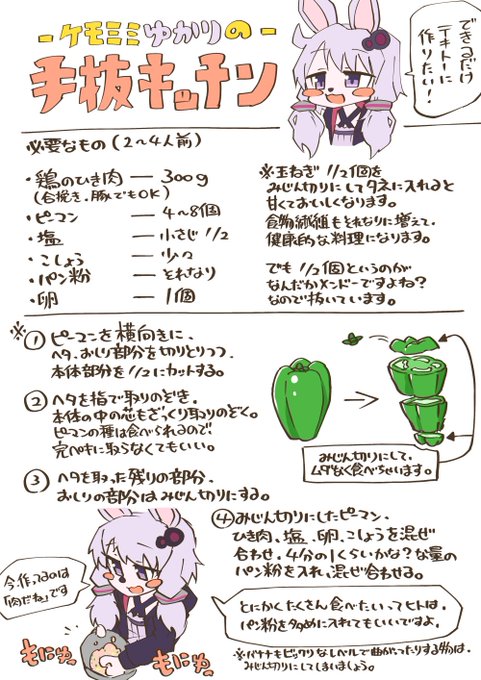 -ケモミミゆかりの-
手抜キッチン
できるだけ
テキトーに
作りたい!
必要なもの(2〜4人前)
・鶏のひき肉 — 300g
(合挽き、豚でもOK)
・ピーマン — 4〜8個
・塩 — 小さじ1/2
・こしょう — 少々
・パン粉 — それなり
・卵 — 1個
※玉ねぎ1/2個を
みじん切りにしてタネに入れると
甘くておいしくなります。
食物繊維もそれなりに増えて、
健康的な料理になります。
でも1/2個というのが
なんだかメンドーですよね?
なので抜いています。
※
①ピーマンを横向きに、
ヘタ、おしり部分を切りとりつつ、
本体部分を1/2にカットする。
②ヘタを指で取りのぞき、
本体の中の芯もざっくり取りのぞく。
ピーマンの種は食べられるので
完ペキに取らなくてもいい。
③ヘタを取った残りの部分、
おしりの部分はみじん切りにする。
みじん切りにして、
ムダなく食べちゃいます。
④みじん切りにしたピーマン、
ひき肉、塩、卵、こしょうを混ぜ
合わせ、4分の1くらいかな?な量の
パン粉を入れ、混ぜ合わせる。
今作ってるのは
「肉だね」です
もにゅ
もにゅ
とにかくたくさん食べたいってヒトは、
パン粉を多めに入れてもいいですよ。
※バナナもビックリなレベルで曲がってたりする物は、
みじん切りにしてしまいましょう。